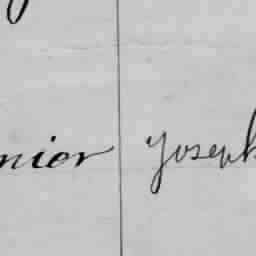 nier Joseph